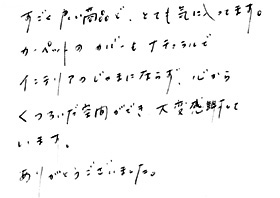 すごく良い商品で、とても気に入ってます。
カーペットのカバーもナチュラルで
インテリアのじゃまにならず、心から
くつろいだ空間ができ 大変感謝して
います。
ありがとうございました。